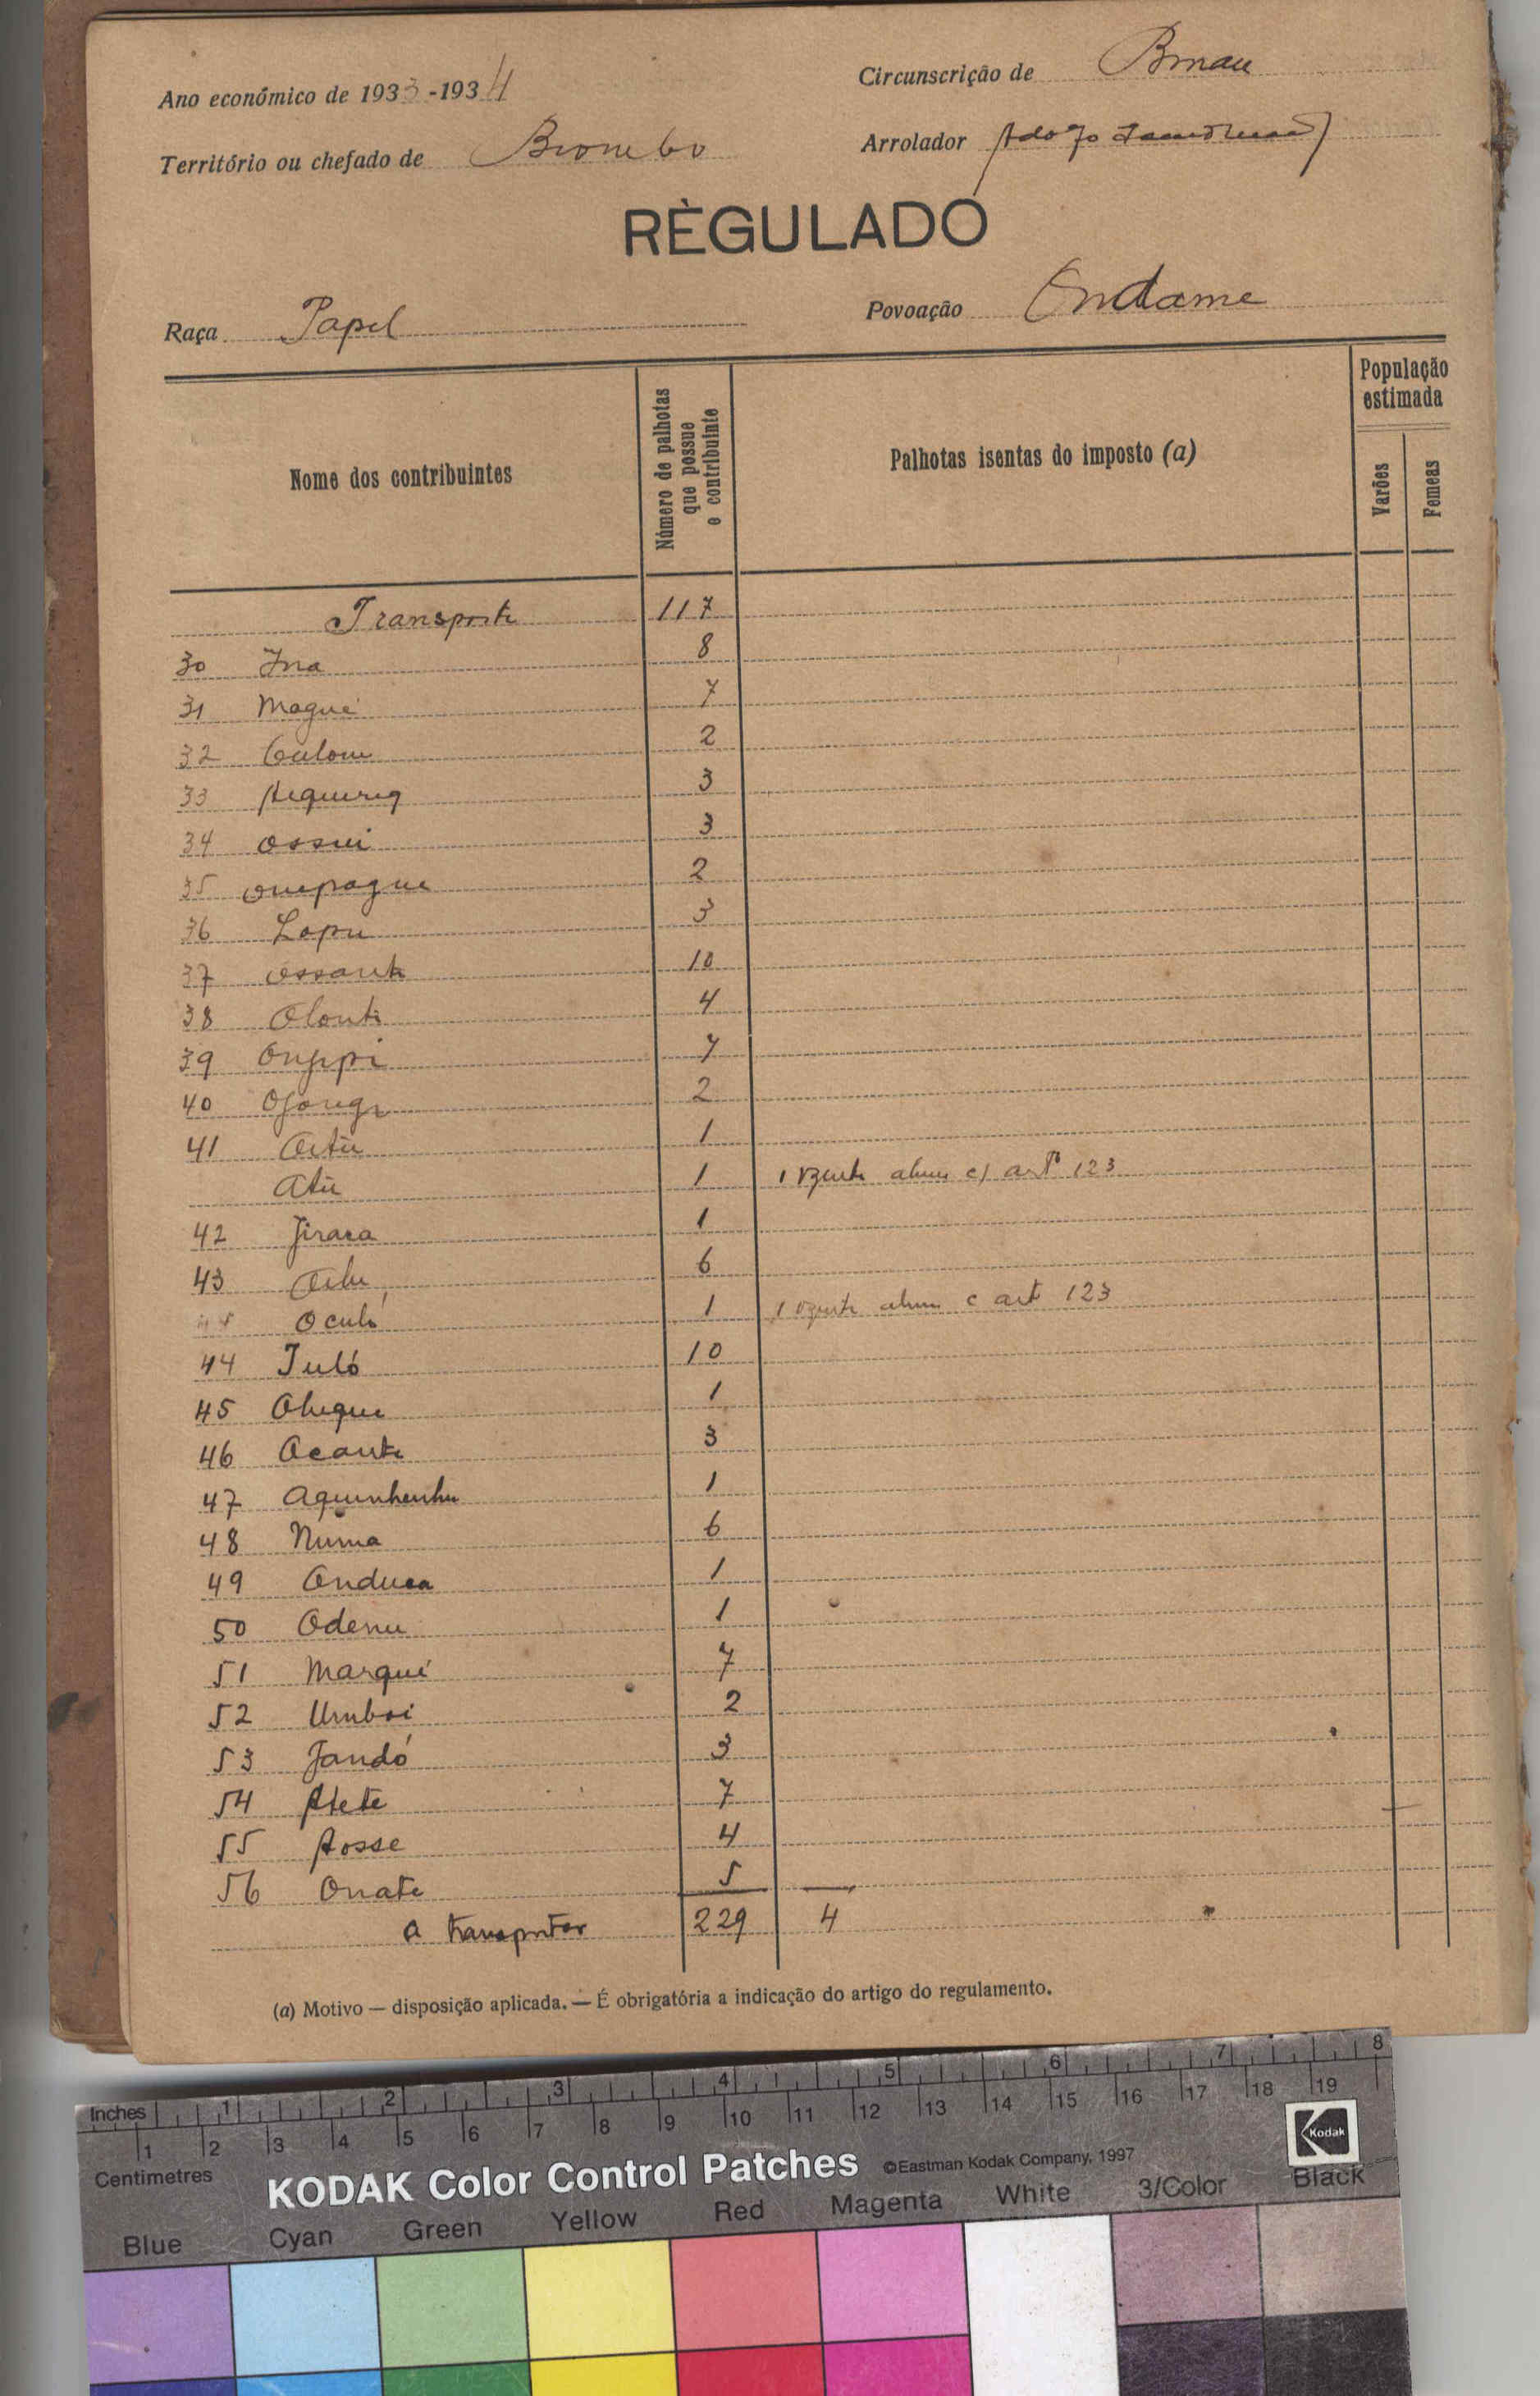 Ano económico de 1933-1934
Circunscrição de
Território ou chefado de Biombo
Arrolador Adolfo
RÈGULADO
Raça Papel
Povoação Ondame
Nome dos contribuintes
Número de palhotas que possue o contribuinte
Palhotas isentas do imposto (a)
População estimada
Varões
Femeas
Transporte 117
30 Ina 8
31 Magué 7
32 Culom 2
33 3
34 Ossui 3
35 2
36 Lopu 3
37 Ossante 10
38 Olonti 4
39 7
40 2
41 1
Atu 1 1 c/ artº 123
42 Jiraca 1
43 6
Oculó 1 1 c art 123
44 Tuló 10
45 1
46 Acante 3
47 Aquinhenhu 1
48 Numa 6
49 Onduca 1
50 Odenu 1
51 Marqué 7
52 Umboi 2
53 Jandó 3
54 Atete 7
55 Aosse 4
56 Onate 5
A transportar 229 4
(a) Motivo — disposição aplicada. — É obrigatória a indicação do artigo do regulamento.
Inches 1 2 3 4 5 6 7 8
1 2 3 4 5 6 7 8 9 10 11 12 13 14 15 16 17 18 19
Centimetres
KODAK Color Control Patches ©Eastman Kodak Company, 1997
Kodak
Blue Cyan Green Yellow Red Magenta White 3/Color Black